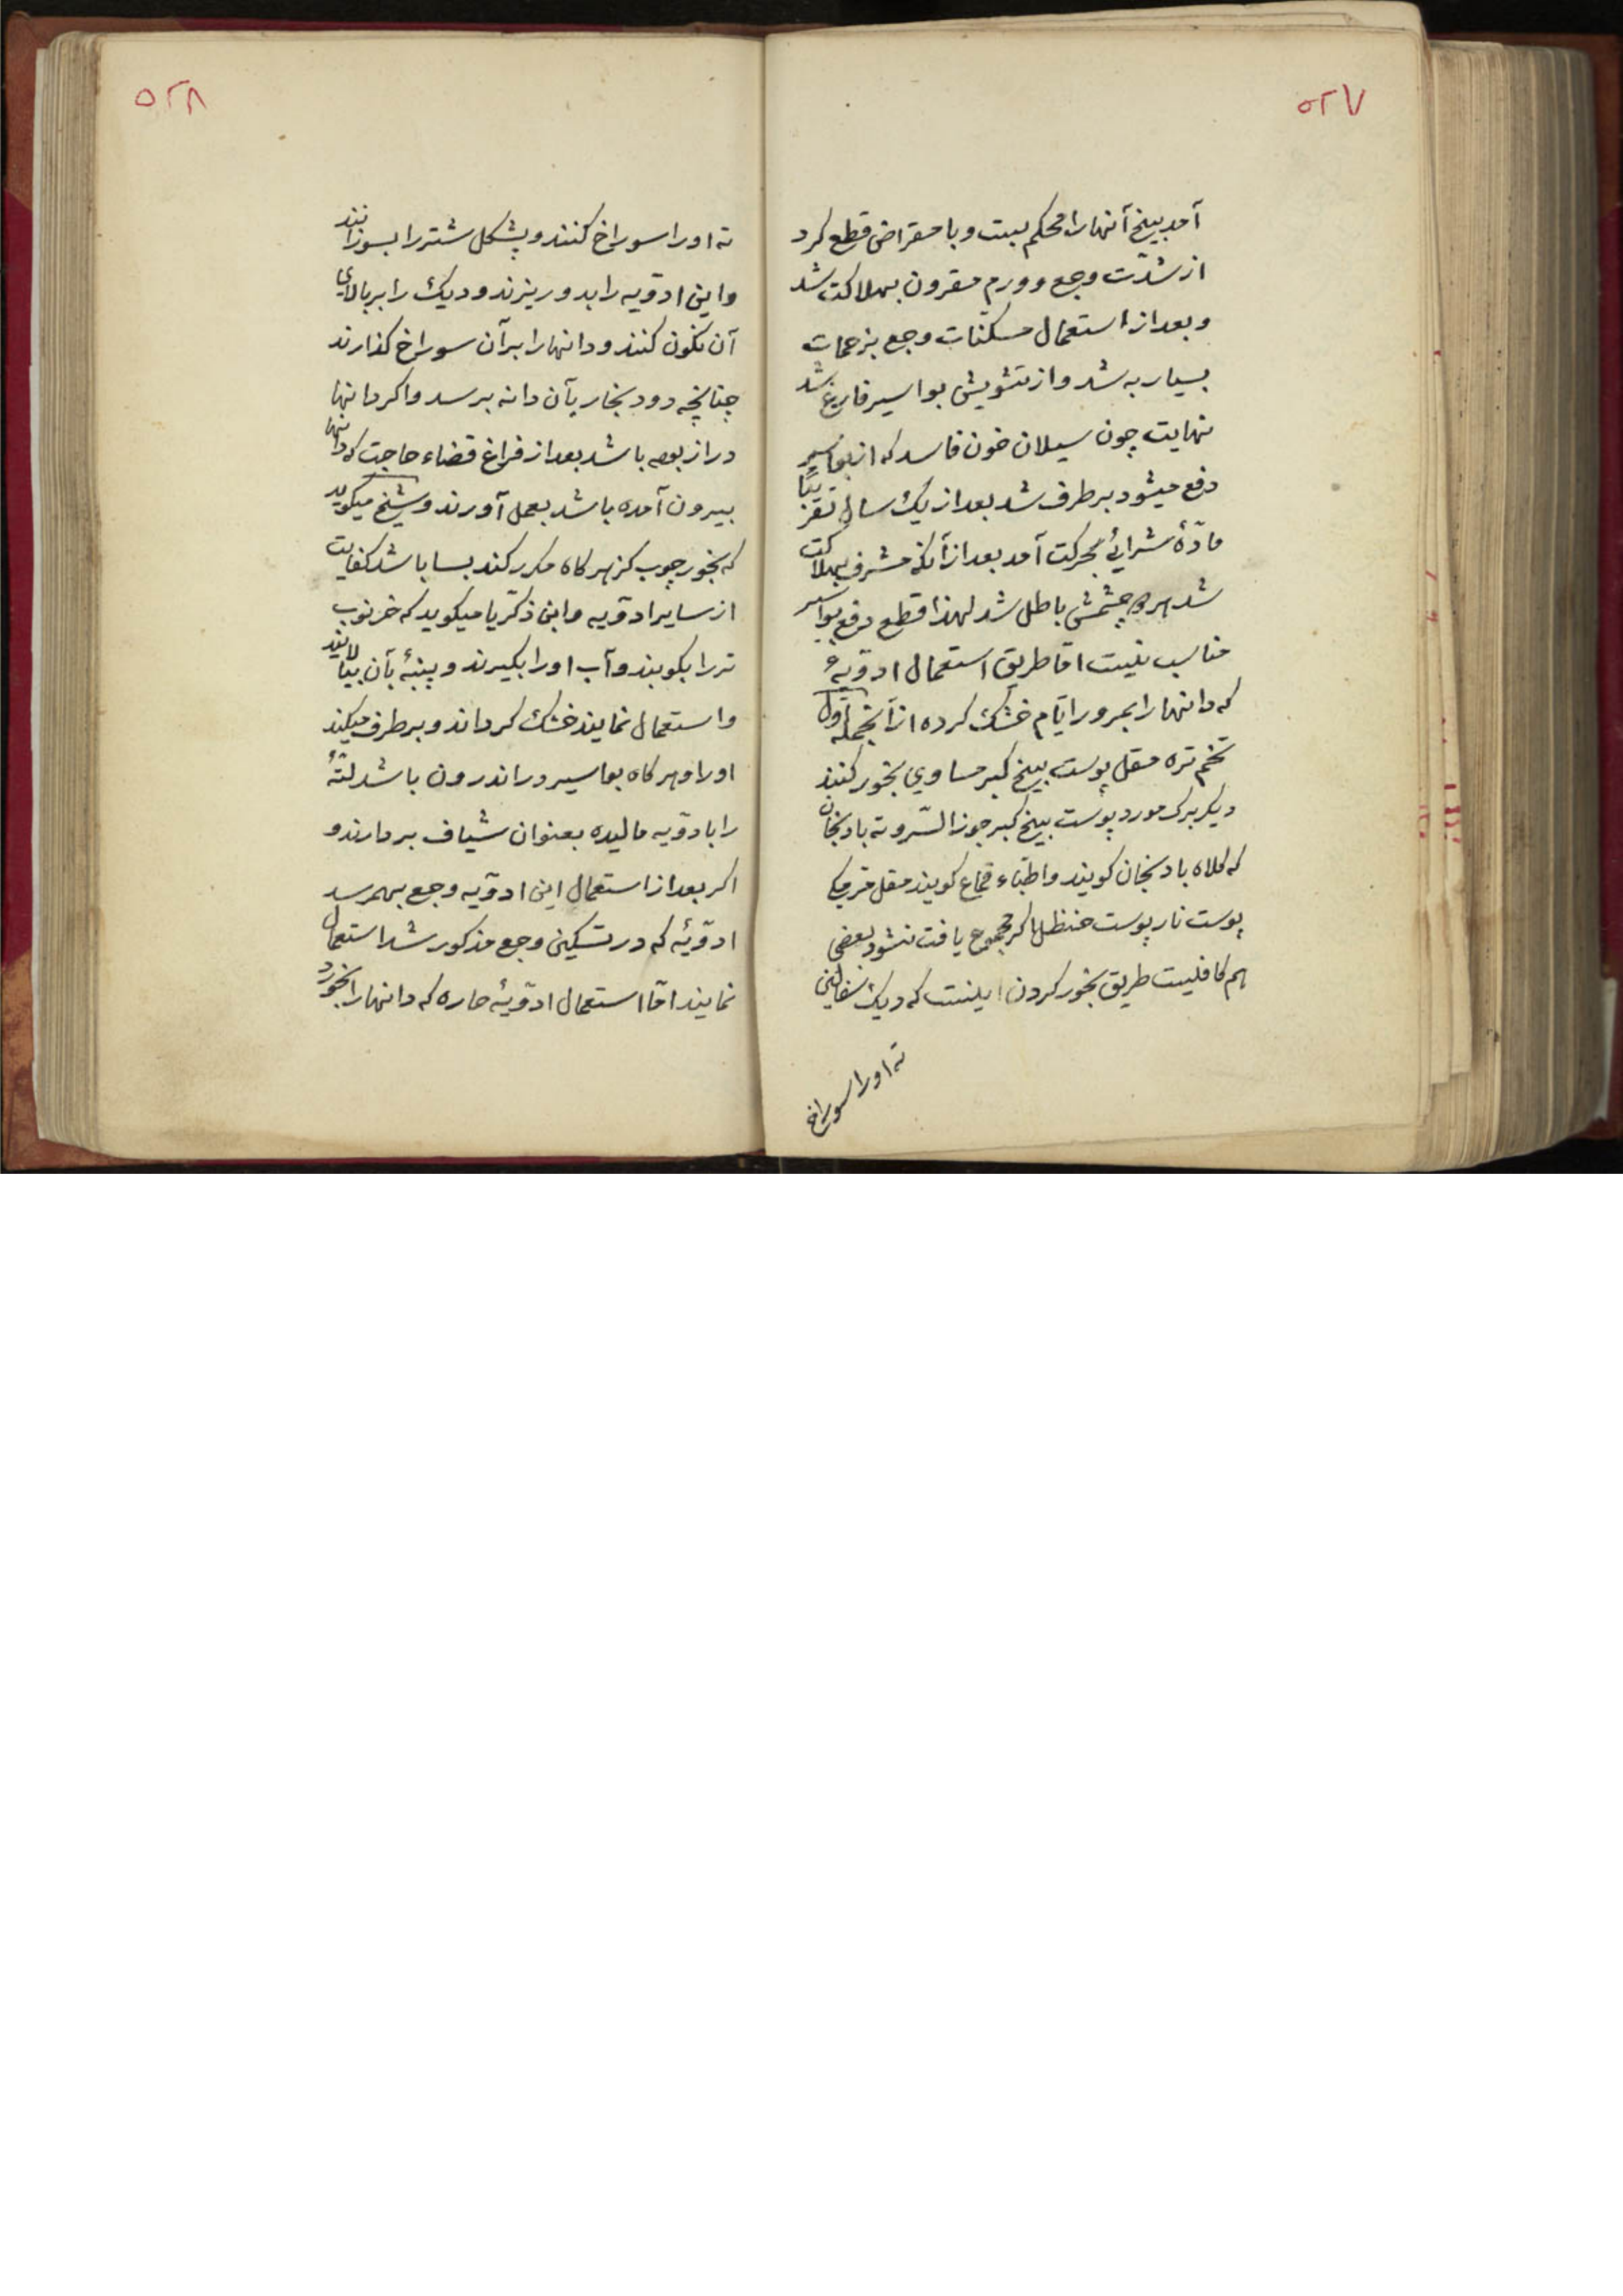 ۵۲۷
آمد بیخ آنها را محکم ببست و با مقراض قطع کرد
از شدّت وجع و ورم مقرون بهلاکت شد
و بعد از استعمال مسکنات وجع بزحمات
بسیار به شد و از تشویش بواسیر فارغ شد
نهایت چون سیلان خون فاسد که از بواسیر
دفع میشود برطرف شد بعد از یک سال تقریبًا
مادّهٔ شرائی بحرکت آمد بعد از آنکه مشرف بهلاکت
شد هر دو چشمش باطل شد لهذا قطع و رفع بواسیر
مناسب نیست امّا طریق استعمال ادویهٔ
که دانها را بمرور ایّام خشک کرده از آنجمله اوّل
تخم تره مقل پوست بیخ کبر مساوی بخور کنند
دیگر برک مورد پوست بیخ کبر جوز السّرو ته بادنجان
که کلاه بادنجان کویند و اطبّاء قماع کویند مقل
پوست نار پوست حنظل اکر مجموع یافت نشود بعضی
هم کافیست طریق بخور کردن اینست که دیک سفالینی
ته او را سوراخ
۵۲۸
ته او را سوراخ کنند و پشکل شتر را بسوزانند
و این ادویّه را بدو ریزند و دیک را بر بالای
آن نکون کنند و دانها را بر آن سوراخ کذارند
چنانچه دود بخار بآن دانه برسد و اکر دانها
دراز بوده باشد بعد از فراغ قضاء حاجت که دانها
بیرون آمده باشد بعمل آورند و شیخ میکوید
که بخور چوب کز هر کاه مکرر کند بسا باشد کفایت
از سایر ادویّه و ابن ذکریّا میکوید که خرنوب
تر را بکوبند و آب او را بکیرند و پنبهٔ بآن بیالایند
و استعمال نمایند خشک کرداند و برطرف میکند
او را و هر کاه بواسیر در اندرون باشد لتّهٔ
را بادویّه مالیده بعنوان شیاف بردارند و
اکر بعد از استعمال این ادویّه وجع بهمرسد
ادویّهٔ که در تسکین وجع مذکور شد استعمال
نمایند امّا استعمال ادویّهٔ حاره که دانها را بخورد